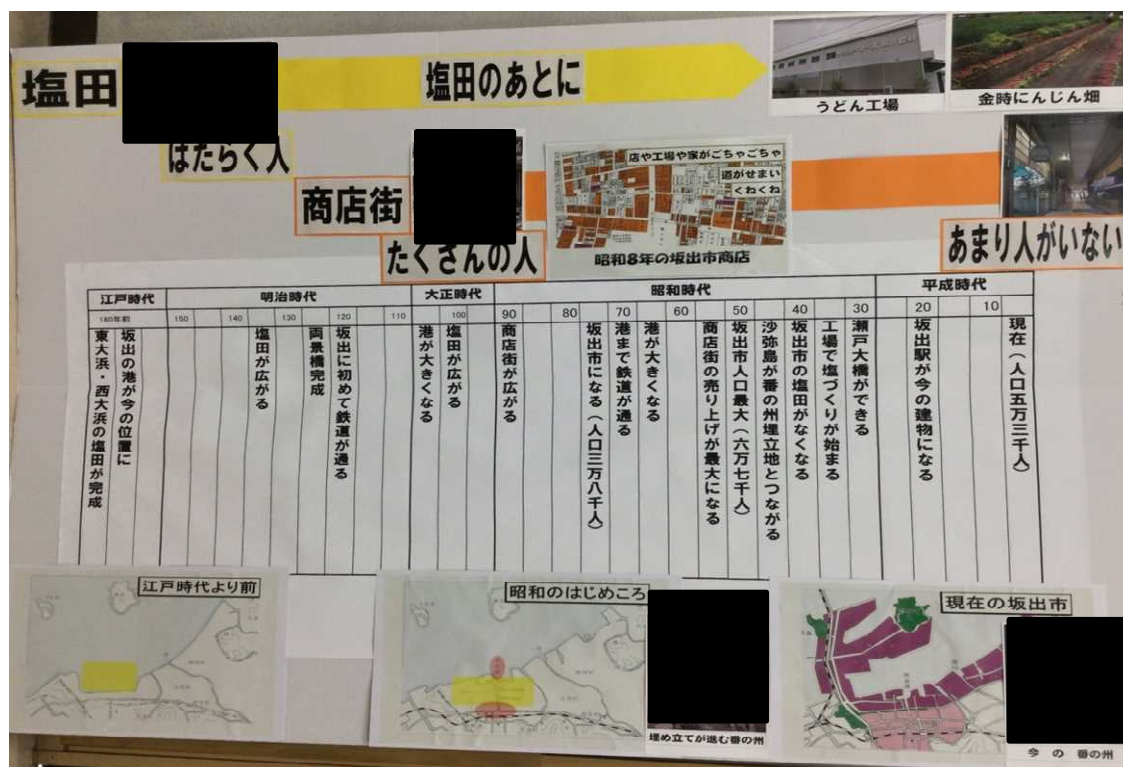 塩田
塩田のあとに
うどん工場
金時にんじん畑
はたらく人
商店街
店や工場や家がごちゃごちゃ
道がせまい
くねくね
昭和8年の坂出市商店
たくさんの人
あまり人がいない
江戸時代
明治時代
大正時代
昭和時代
平成時代
180年前
150
140
130
120
110
100
90
80
70
60
50
40
30
20
10
東大浜・西大浜の塩田が完成
坂出の港が今の位置に
塩田が広がる
両景橋完成
坂出に初めて鉄道が通る
港が大きくなる
塩田が広がる
商店街が広がる
坂出市になる(人口三万八千人)
港まで鉄道が通る
港が大きくなる
商店街の売り上げが最大になる
坂出市人口最大(六万七千人)
沙弥島が番の州埋立地とつながる
坂出市の塩田がなくなる
工場で塩づくりが始まる
瀬戸大橋ができる
坂出駅が今の建物になる
現在(人口五万三千人)
江戸時代より前
昭和のはじめころ
埋め立てが進む番の州
現在の坂出市
今の番の州